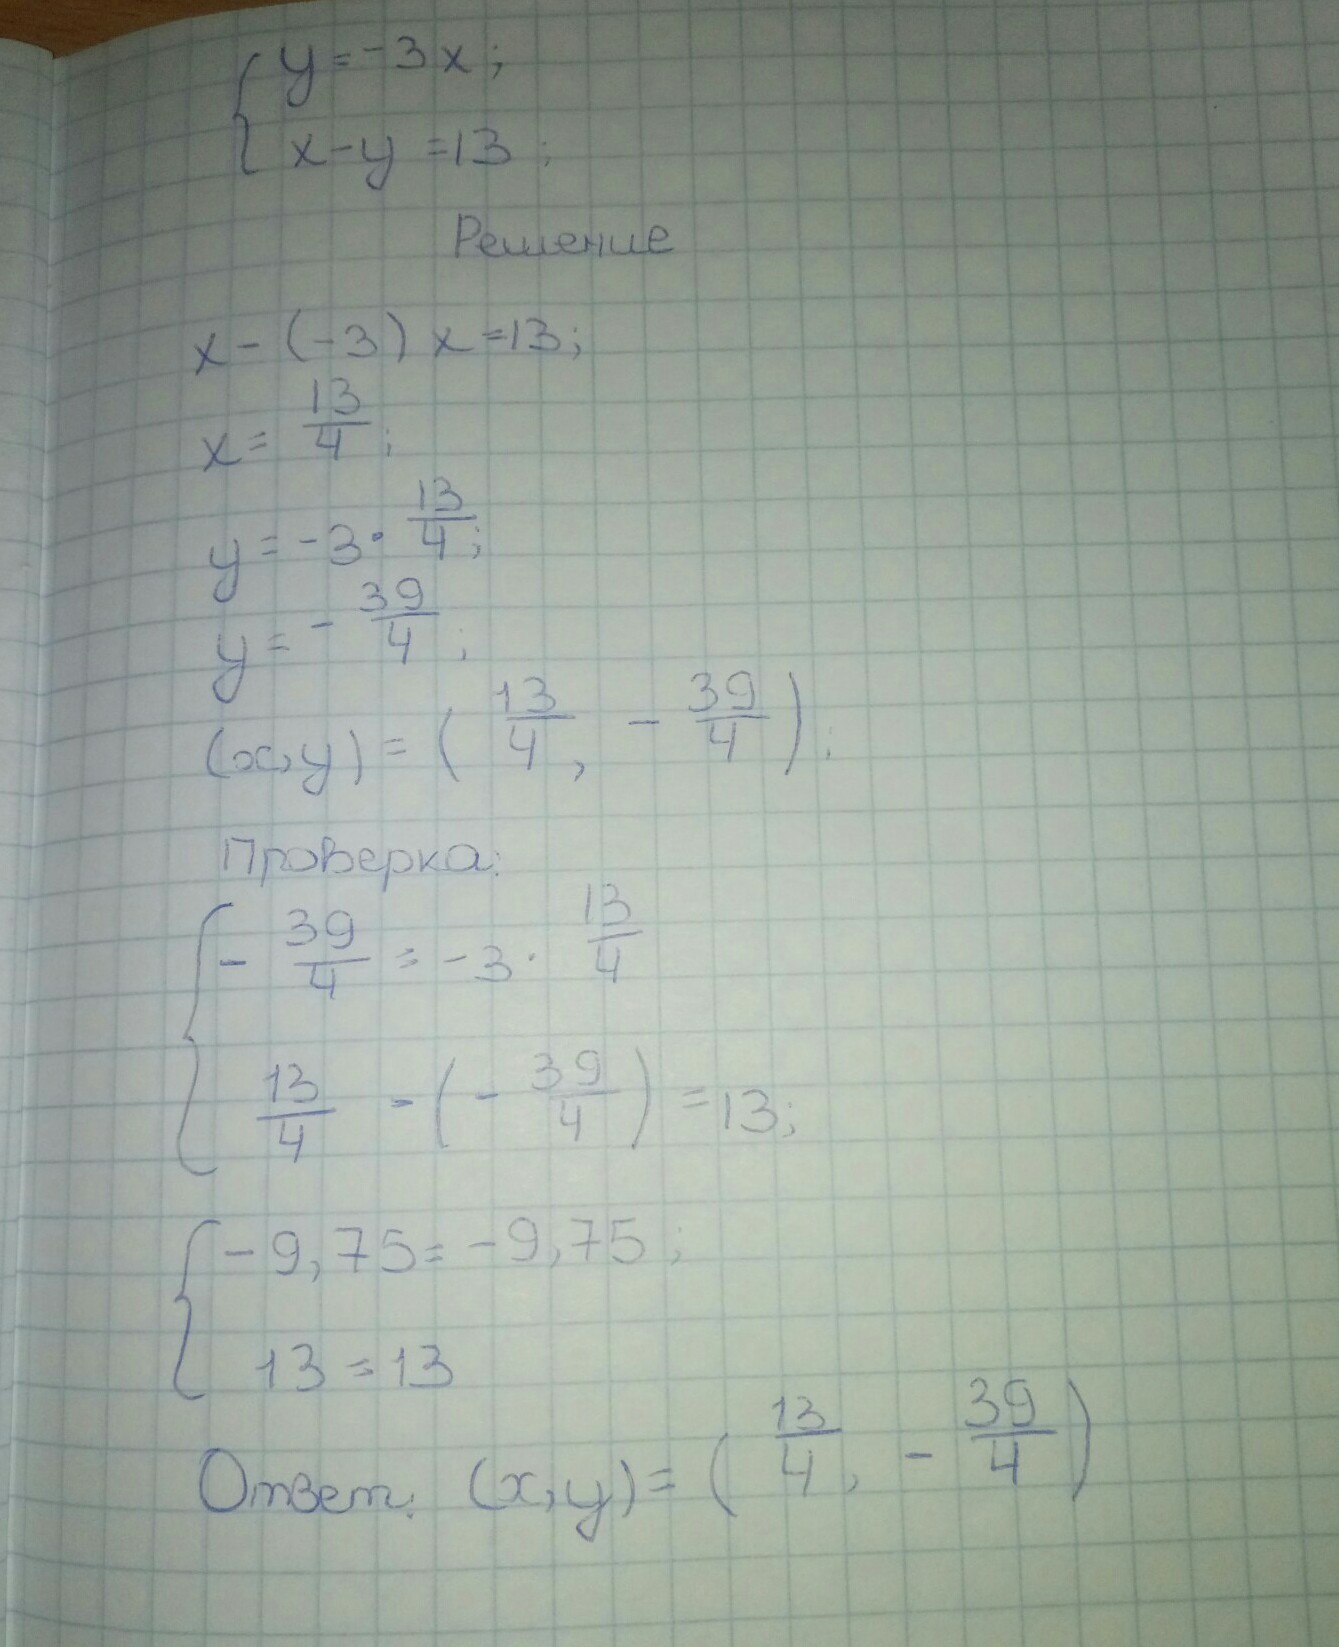 { y = -3x;
x - y = 13;
Решение
x - (-3) x = 13;
x = 13/4;
y = -3 · 13/4;
y = - 39/4;
(x,y) = ( 13/4, - 39/4 );
Проверка:
{ - 39/4 = -3 · 13/4
13/4 - ( - 39/4 ) = 13;
{ -9,75 = -9,75;
13 = 13
Ответ: (x,y) = ( 13/4, - 39/4 )